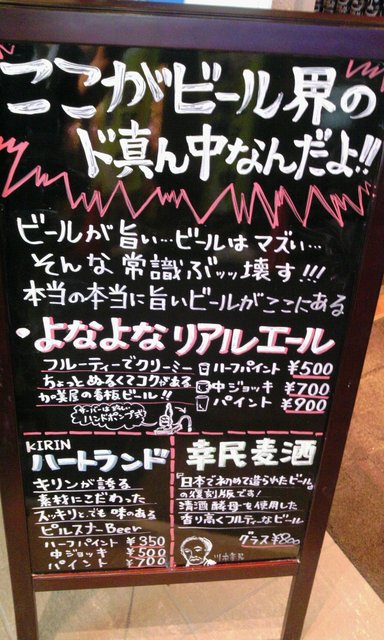 ここがビール界の
ド真ん中なんだよ!!
ビールが旨い…ビールはマズい…
そんな常識ぶッッ壊す!!!
本当の本当に旨いビールがここにある
・よなよなリアルエール
フルーティーでクリーミー
ちょっとぬるくてコクがある
加美屋の看板ビール!!
ハンドポンプ式
ハーフパイント ¥500
中ジョッキ ¥700
パイント ¥900
KIRIN
ハートランド
キリンが誇る
素材にこだわった
スッキリとでも味のある
ピルスナーBeer
ハーフパイント ¥350
中ジョッキ ¥500
パイント ¥700
幸民麦酒
「日本で初めて造られたビール」
の復刻版です!
清酒酵母を使用した
香り高くフルティーなビール
グラス ¥800
川本幸民